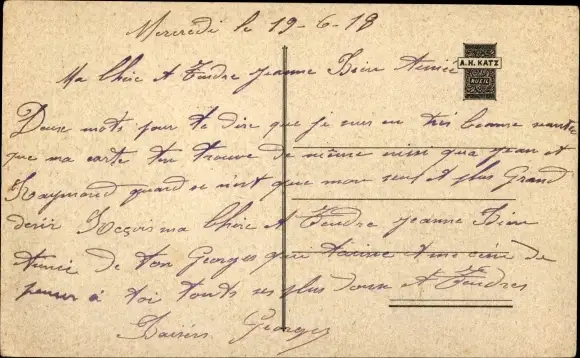 Mercredi le 19-6-18
Ma Chère et Tendre Jeanne Bien Aimée
A.H. KATZ
RUEIL
Deux mots pour te dire que je suis en très bonne santée
que ma carte ten trouve de même ainsi qua Jean et
Raymond quand ce n'est que mon seul et plus Grand
désir Reçois ma Chère et Tendre Jeanne Bien
Aimée de ton Georges qui taime et ne céce de
penser à toi touts ses plus doux et Tendres
Baisers Georges